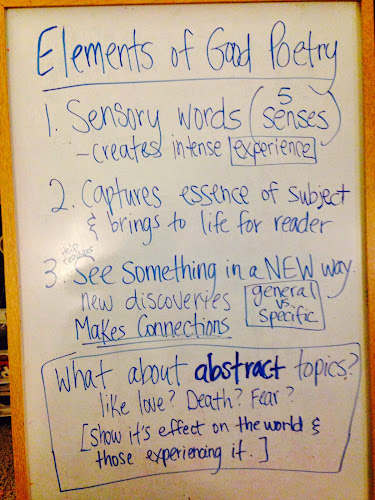 Elements of Good Poetry
1. Sensory words (5 senses)
- creates intense experience
2. Captures essence of subject
& brings to life for reader
Help reader
3. See Something in a NEW way.
new discoveries
general vs. specific
Makes Connections
What about abstract topics?
like love? Death? Fear?
[Show it's effect on the world &
those experiencing it.]